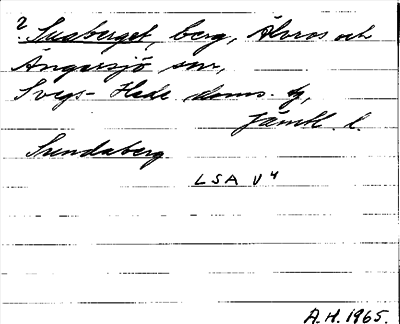 ? Svaberget, berg, Älvros och
Ängersjö snr,
Svegs- Hede doms. tg,
Jämtl. l.
Svendaberg
LSA V4
A.H. 1965.